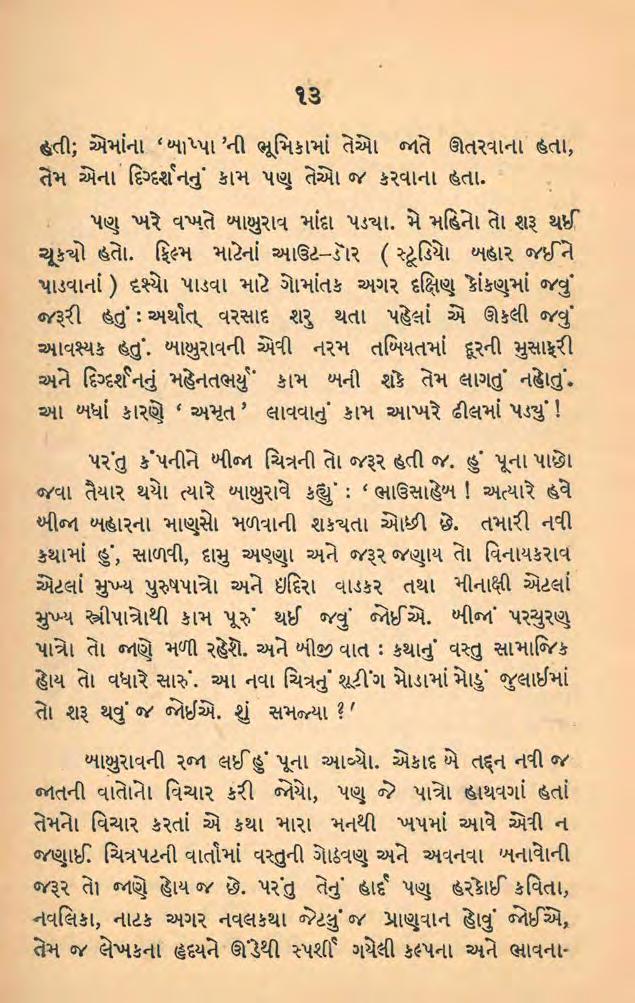 ૧૩
હતી; એમાંના ‘બાપ્પા’ની ભૂમિકામાં તેઓ જાતે ઊતરવાના હતા,
તેમ એના દિગ્દર્શનનું કામ પણ તેઓ જ કરવાના હતા.
પણ ખરે વખતે બાબુરાવ માંદા પડ્યા. મે મહિનો તો શરૂ થઈ
ચૂક્યો હતો. ફિલ્મ માટેનાં આઉટ–ડોર ( સ્ટૂડિયો બહાર જઈને
પાડવાનાં ) દૃશ્યો પાડવા માટે ગોમાંતક અગર દક્ષિણ કોંકણમાં જવું
જરૂરી હતું : અર્થાત્ વરસાદ શરુ થતા પહેલાં એ ઊકલી જવું
આવશ્યક હતું. બાબુરાવની એવી નરમ તબિયતમાં દૂરની મુસાફરી
અને દિગ્દર્શનનું મહેનતભર્યું કામ બની શકે તેમ લાગતું નહોતું.
આ બધાં કારણે ‘ અમૃત ’ લાવવાનું કામ આખરે ઢીલમાં પડ્યું !
પરંતુ કંપનીને બીજા ચિત્રની તો જરૂર હતી જ. હું પૂના પાછો
જવા તૈયાર થયો ત્યારે બાબુરાવે કહ્યું : ‘ ભાઉસાહેબ ! અત્યારે હવે
બીજા બહારના માણસો મળવાની શક્યતા ઓછી છે. તમારી નવી
કથામાં હું, સાળવી, દામુ અણ્ણા અને જરૂર જણાય તો વિનાયકરાવ
એટલાં મુખ્ય પુરુષપાત્રો અને ઇંદિરા વાડકર તથા મીનાક્ષી એટલાં
મુખ્ય સ્ત્રીપાત્રોથી કામ પૂરું થઈ જવું જોઈએ. બીજાં પરચુરણ
પાત્રો તો જાણે મળી રહેશે. અને બીજી વાત : કથાનું વસ્તુ સામાજિક
હોય તો વધારે સારું. આ નવા ચિત્રનું શૂટીંગ મોડામાં મોડું જુલાઈમાં
તો શરૂ થવું જ જોઈએ. શું સમજ્યા ?’
બાબુરાવની રજા લઈ હું પૂના આવ્યો. એકાદ બે તદ્દન નવી જ
જાતની વાતોનો વિચાર કરી જોયો, પણ જે પાત્રો હાથવગાં હતાં
તેમનો વિચાર કરતાં એ કથા મારા મનથી ખપમાં આવે એવી ન
જણાઈ. ચિત્રપટની વાર્તામાં વસ્તુની ગોઠવણ અને અવનવા બનાવોની
જરૂર તો જાણે હોય જ છે. પરંતુ તેનું હાર્દ પણ હરકોઈ કવિતા,
નવલિકા, નાટક અગર નવલકથા જેટલું જ પ્રાણવાન હોવું જોઈએ,
તેમ જ લેખકના હૃદયને ઊંડેથી સ્પર્શી ગયેલી કલ્પના અને ભાવના-